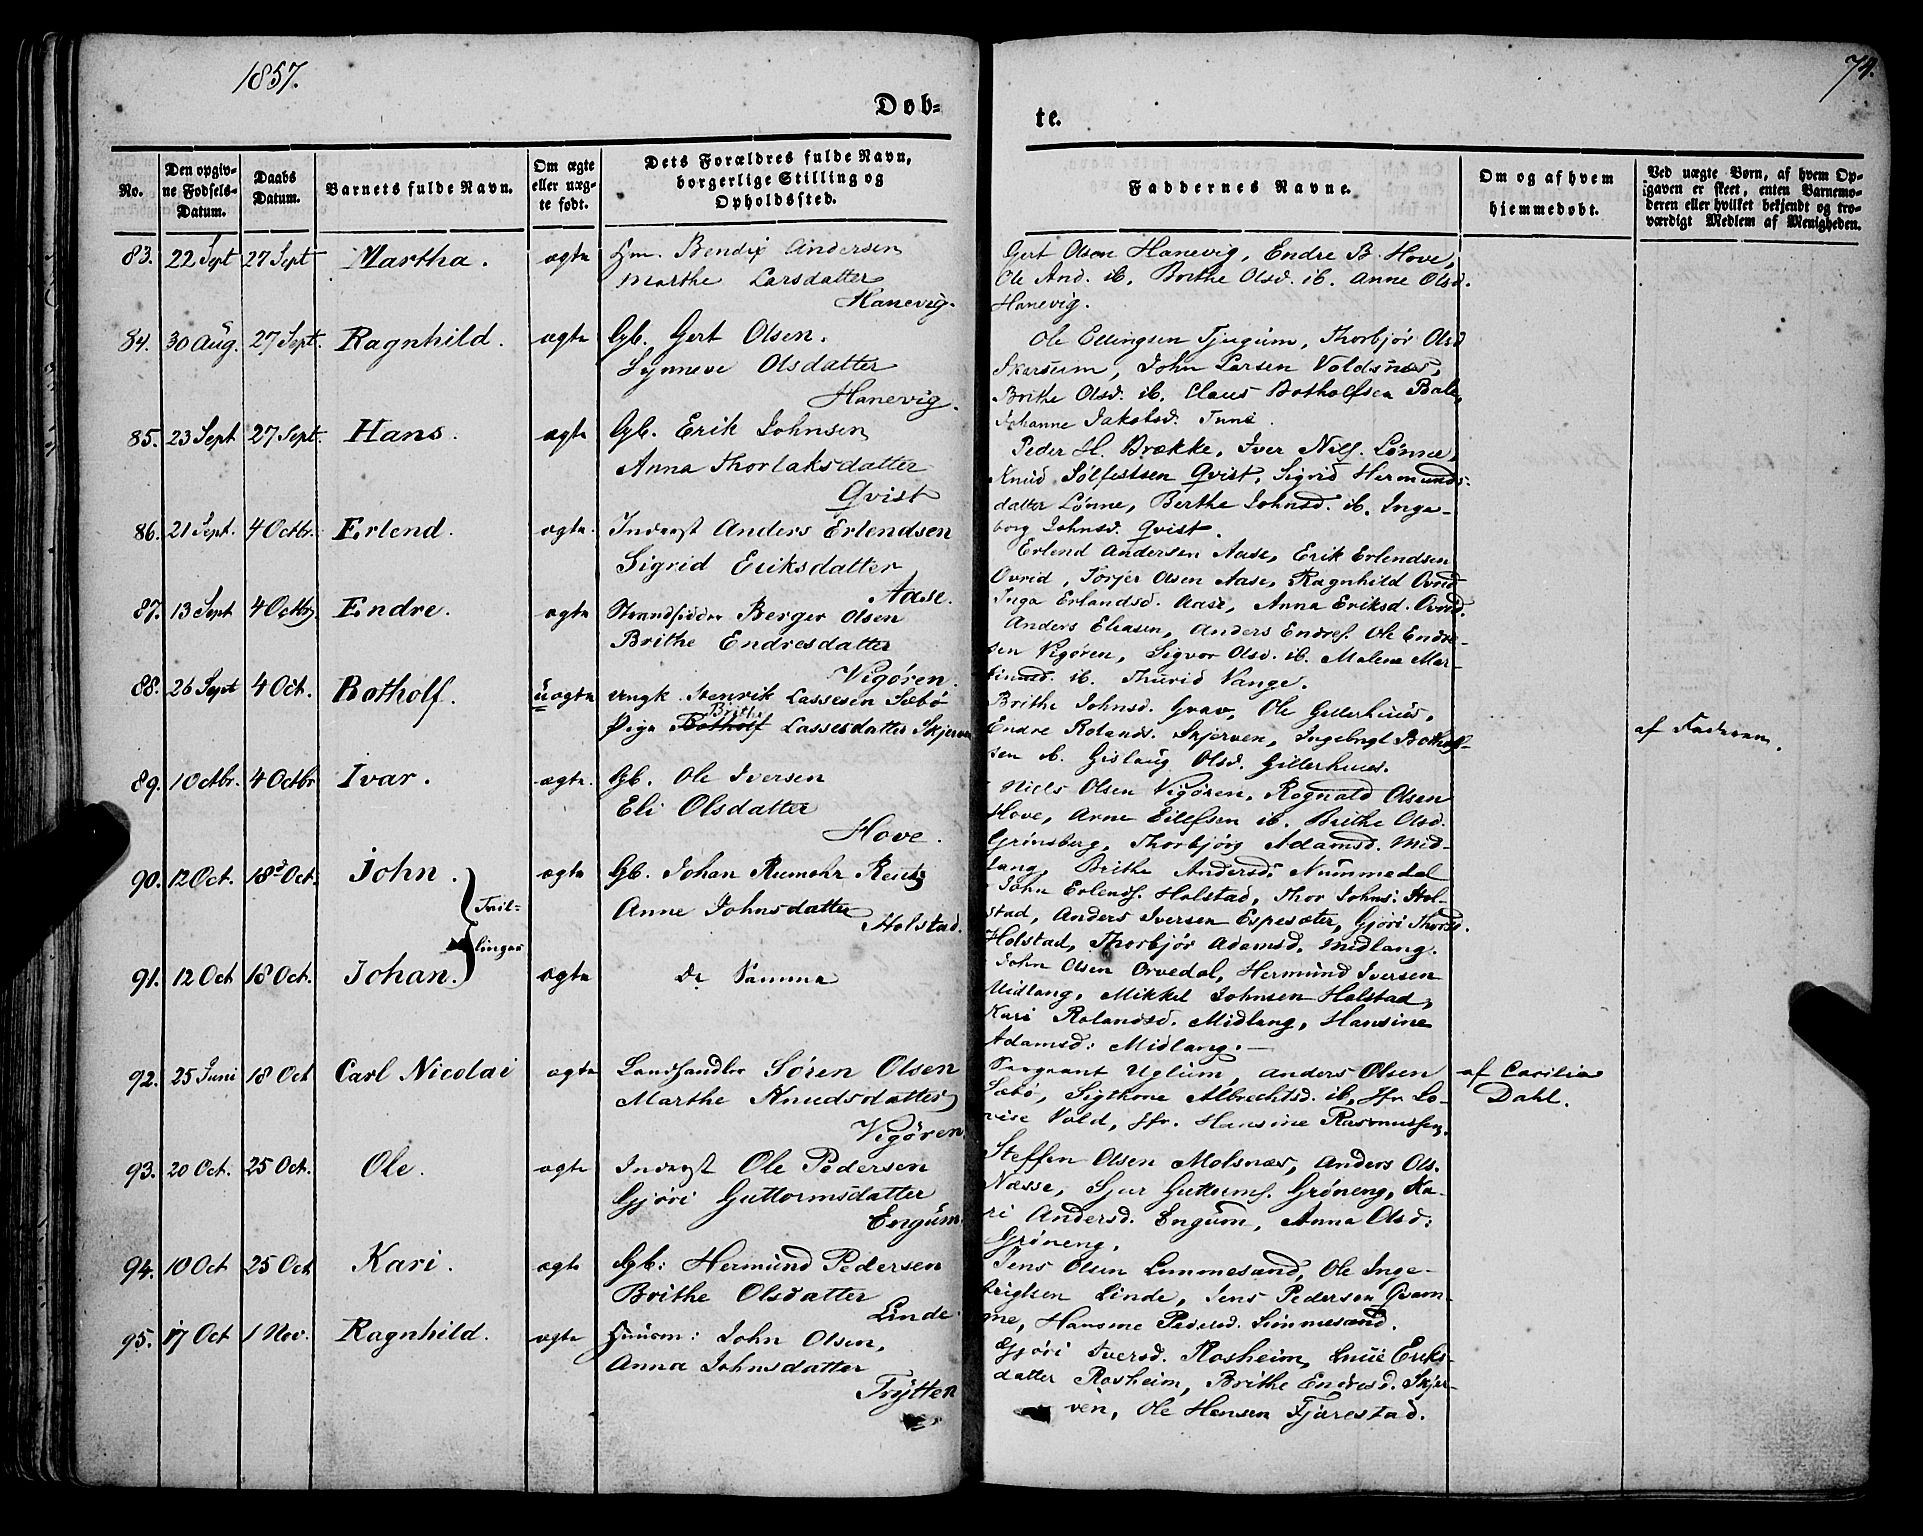 1857.
74.
Døb-
te.
No.
Den opgiv-
ne Fødsels-
Datum.
Daabs
Datum.
Barnets fulde Navn.
Om ægte
eller uæg-
te født.
Dets Forældres fulde Navn,
borgerlige Stilling og
Opholdssted.
Faddernes Navne.
Om og af hvem
hjemmedøbt.
Ved uægte Børn, af hvem Op-
gaven er skeet, enten Barnemo-
deren eller hvilket bekjendt og tro-
værdigt Medlem af Menigheden.
83. 22 Sept 27 Sept Martha. ægte Hm. Bendix Andersen
Marthe Larsdatter
Hanevig.
Gert Olsen Hanevig, Endre B. Hove,
Ole And. ib. Brithe Olsd. ib. Anne Olsd.
Hanevig.
84. 30 Aug. 27 Sept. Ragnhild. ægte Gb. Gert Olsen.
Synneve Olsdatter
Hanevig.
Ole Ellingsen Tjugum, Thorbjør Olsd
John Larsen Voldsnæs,
Brithe Olsd. ib. Claus Botholfsen Bale,
Johanne Jakobsd. Tune.
85. 23 Sept 27 Sept. Hans. ægte Gb. Erik Johnsen
Anna Thorlaksdatter
Qvist
Peder H. Brække, Iver Nils. Lønne,
Knud Sølfestsen Qvist, Sigrid Hermunds-
datter Lønne, Berthe Johnsd. ib. Inge-
borg Johnsd. Qvist.
86. 21 Sept. 4 Octbr. Erlend. ægte. Inderst Anders Erlendsen
Sigrid Eriksdatter
Aase.
Erlend Andersen Aase, Erik Erlendsen
Ovrid, Torjer Olsen Aase, Ragnhild Ovrid
Inga Erlandsd. Aase, Anna Eriksd. Ovrid.
87. 13 Sept 4 Octbr Endre. ægte Strandsidder Berger Olsen
Brithe Endresdatter
Vigøren.
Anders Eliasen, Anders Endres. Ole Endre-
sen Vigøren, Sigvor Olsd. ib. Malene Mar-
ib. Thurid Vange.
88. 26 Sept 4 Oct. Botholf. uægte Ungk. Henrik Lassesen Sæbø
Brithe
Pige Botholf Lassesdatter Skjerven
Brithe Johnsd. Grav, Ole Gillerhuus,
Endre Rolands. Skjerven, Ingebrigt Bothol-
sen ib. Gislaug Olsd. Gillerhuus.
af Faderen.
89. 1 Octbr. 4 Octbr Ivar. ægte. Gb. Ole Iversen
Eli Olsdatter
Hove.
Niels Olsen Vigøren, Rognald Olsen
Hove, Arne Eilefsen ib. Brithe Olsd.
Grinsberg, Thorbjørg Adamsd. Mid-
lang, Brithe Andersd. Nummedal
90. 12 Oct. 18 Oct. John. ægte Gb. Johan Rumohr Reutz
Anne Johnsdatter
Holstad.
Tvil-
linger
John Erlends. Holstad, Thor Johns: Hol-
stad, Anders Iversen Espesæter, Gjøri Thorsd.
Holstad, Thorbjør Adamsd. Midlang.
91. 12 Oct 18 Oct. Johan. ægte De Samme
John Olsen Orvedal, Hermund Iversen
Midlang, Mikkel Johnsen Holstad,
Kari Rolandsd. Midlang, Hansine
Adamsd: Midlang. —
92. 25 Juni 18 Oct Carl Nicolai ægte Landhandler Søren Olsen
Marthe Knudsdatter
Vigøren.
Sergeant Uglum, Anders Olsen
Sæbø, Albrechtsd. ib, Jfr. Lo-
vise Vold, Jfr. Hansine Rasmussen.
af Cecilia
Dahl.
93. 20 Oct. 25 Oct. Ole. ægte Inderst Ole Pedersen
Gjøri Guttormsdatter
Engum.
Steffen Olsen Molsnæs, Anders Ols.
Næsse, Sjur Guttorms. Grøneng, Ka-
ri Andersd. Engum, Anna Olsd:
Grøneng.
94. 10 Oct 25 Oct Kari. ægte Gb: Hermund Pedersen
Brithe Olsdatter
Linde.
Jens Olsen Limmesand, Ole Inge-
brigtsen Linde, Jens Pedersen Qvam-
me, Hansine Pedersd. Limmesand.
95. 17 Oct 1 Nov. Ragnhild. ægte Huusm: John Olsen,
Anna Johnsdatter
Trytten
Gjøri Iversd. Rosheim, Eriks-
datter Rosheim, Brithe Endresd. Skjer-
ven, Ole Hansen Fjærestad.